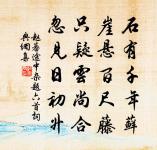 石有千年蘚
崖懸百尺藤
只疑雲尚合
忽見日初升
趙蕃途中杂題六首詞
典網集